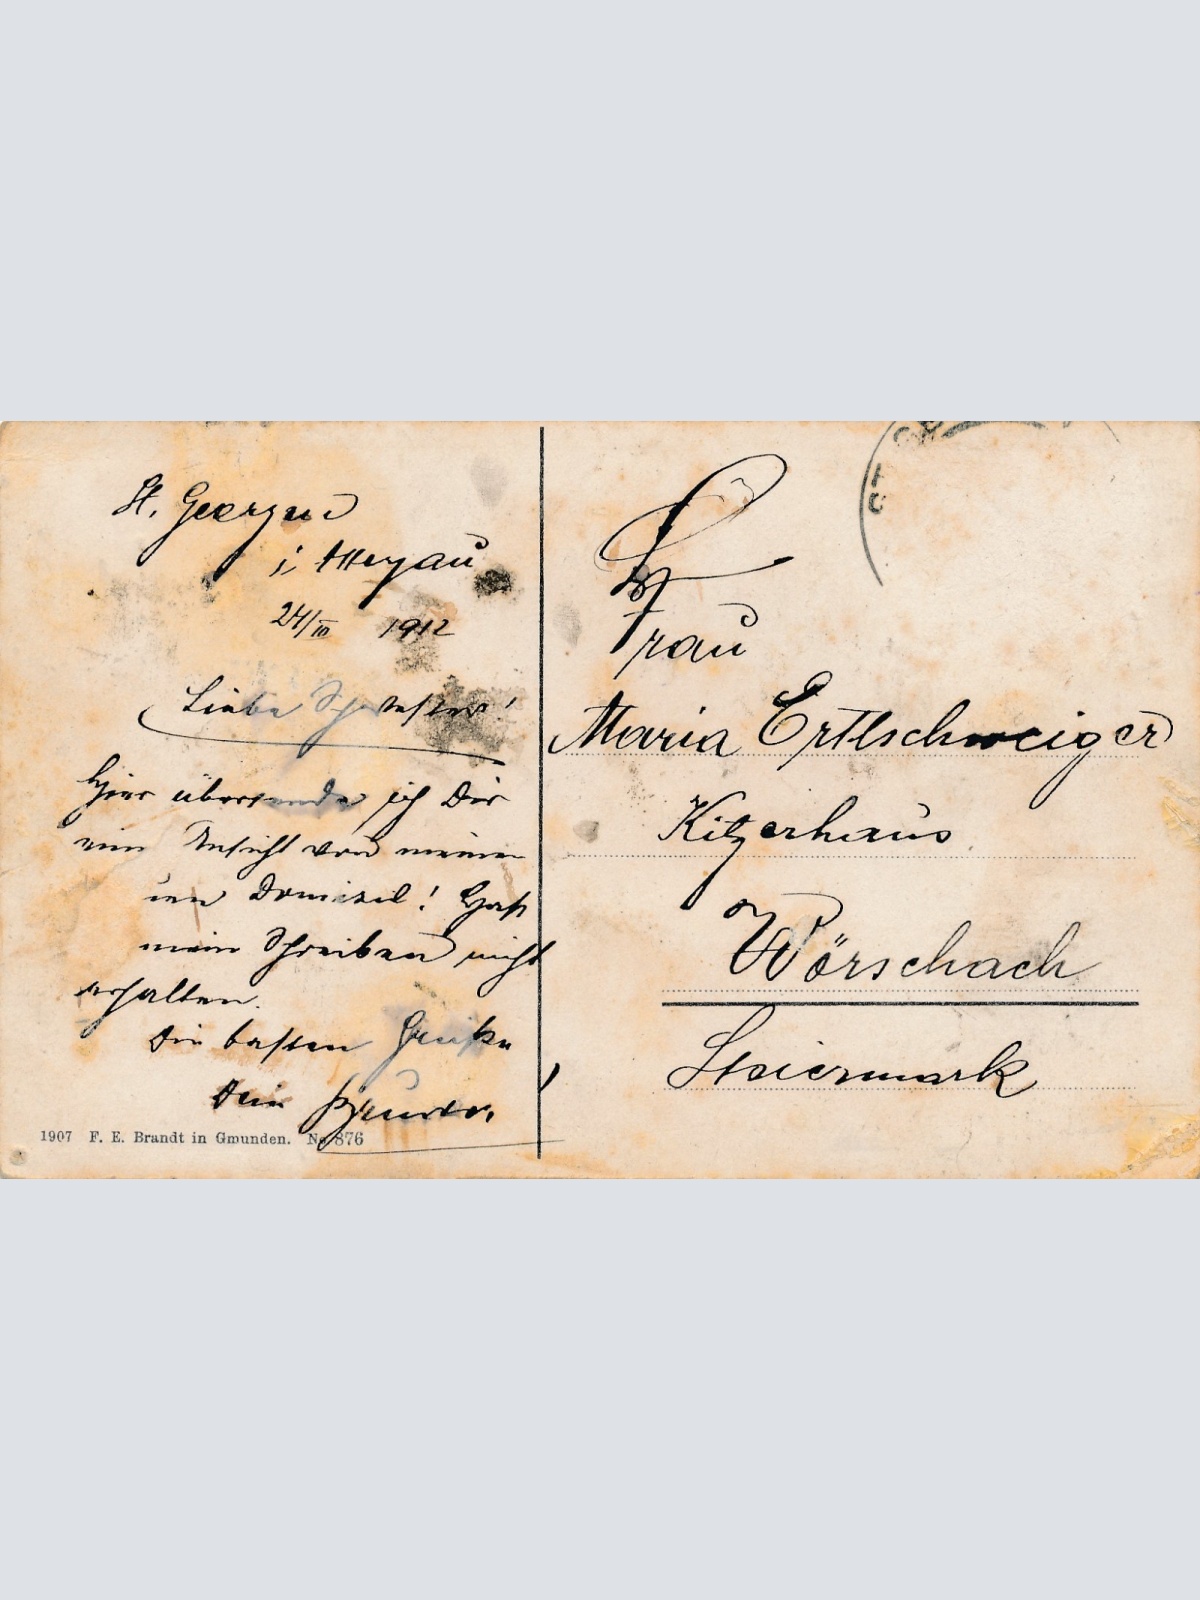 St. Georgen
i. Attergau
24/III 1912
Liebe Schwester!
Hier übersende ich Dir
eine Ansicht von meinem
neuen Domizil! Hast
mein Schreiben nicht
erhalten.
Die besten Grüße
Dein Bruder.
1907 F. E. Brandt in Gmunden. No 876
Frau
Maria Ertlschweiger
Kitzerhaus
Wörschach
Steiermark